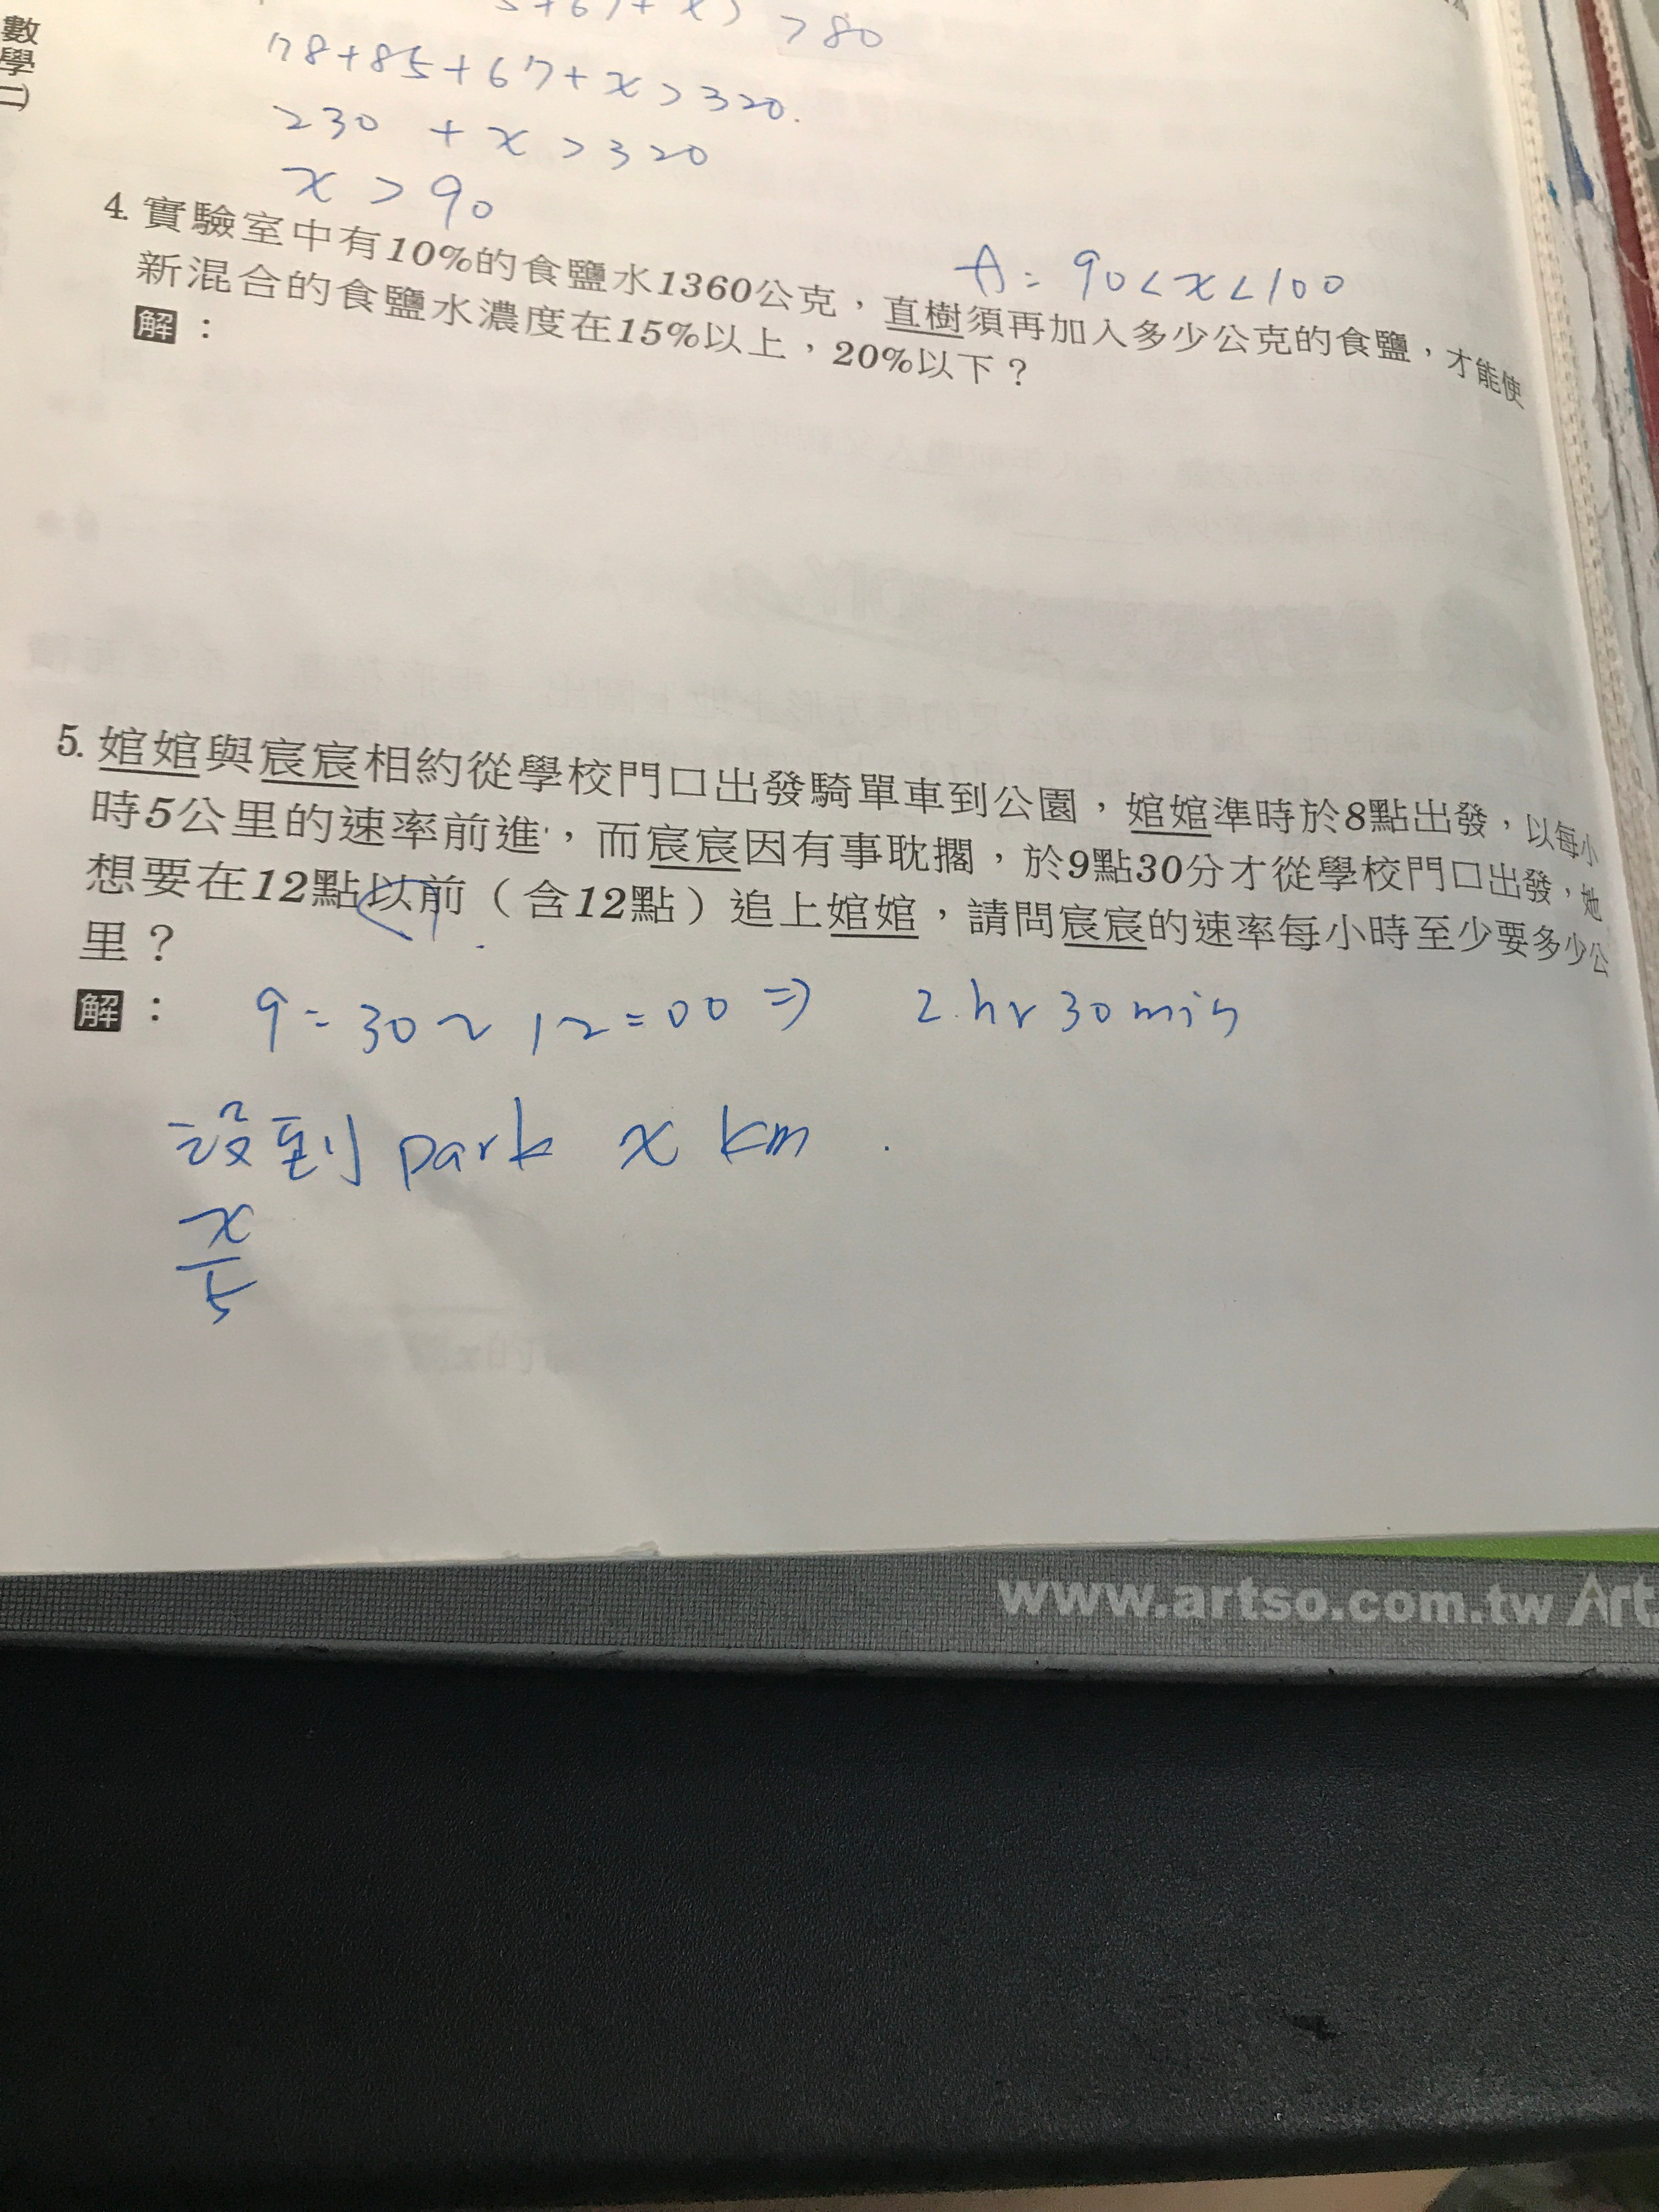 數學(二)
5+67+x) >80
78+85+67+x>320.
230 +x>320
x>90
A: 90<x<100
4. 實驗室中有10%的食鹽水1360公克，直樹須再加入多少公克的食鹽，才能使
新混合的食鹽水濃度在15%以上，20%以下？
解：
5. 婠婠與宸宸相約從學校門口出發騎單車到公園，婠婠準時於8點出發，以每小
時5公里的速率前進，而宸宸因有事耽擱，於9點30分才從學校門口出發，她
想要在12點以前（含12點）追上婠婠，請問宸宸的速率每小時至少要多少公
里？
解： 9:30~12:00⇒ 2.hr 30 min
設到 park x km .
x
5
www.artso.com.tw Art